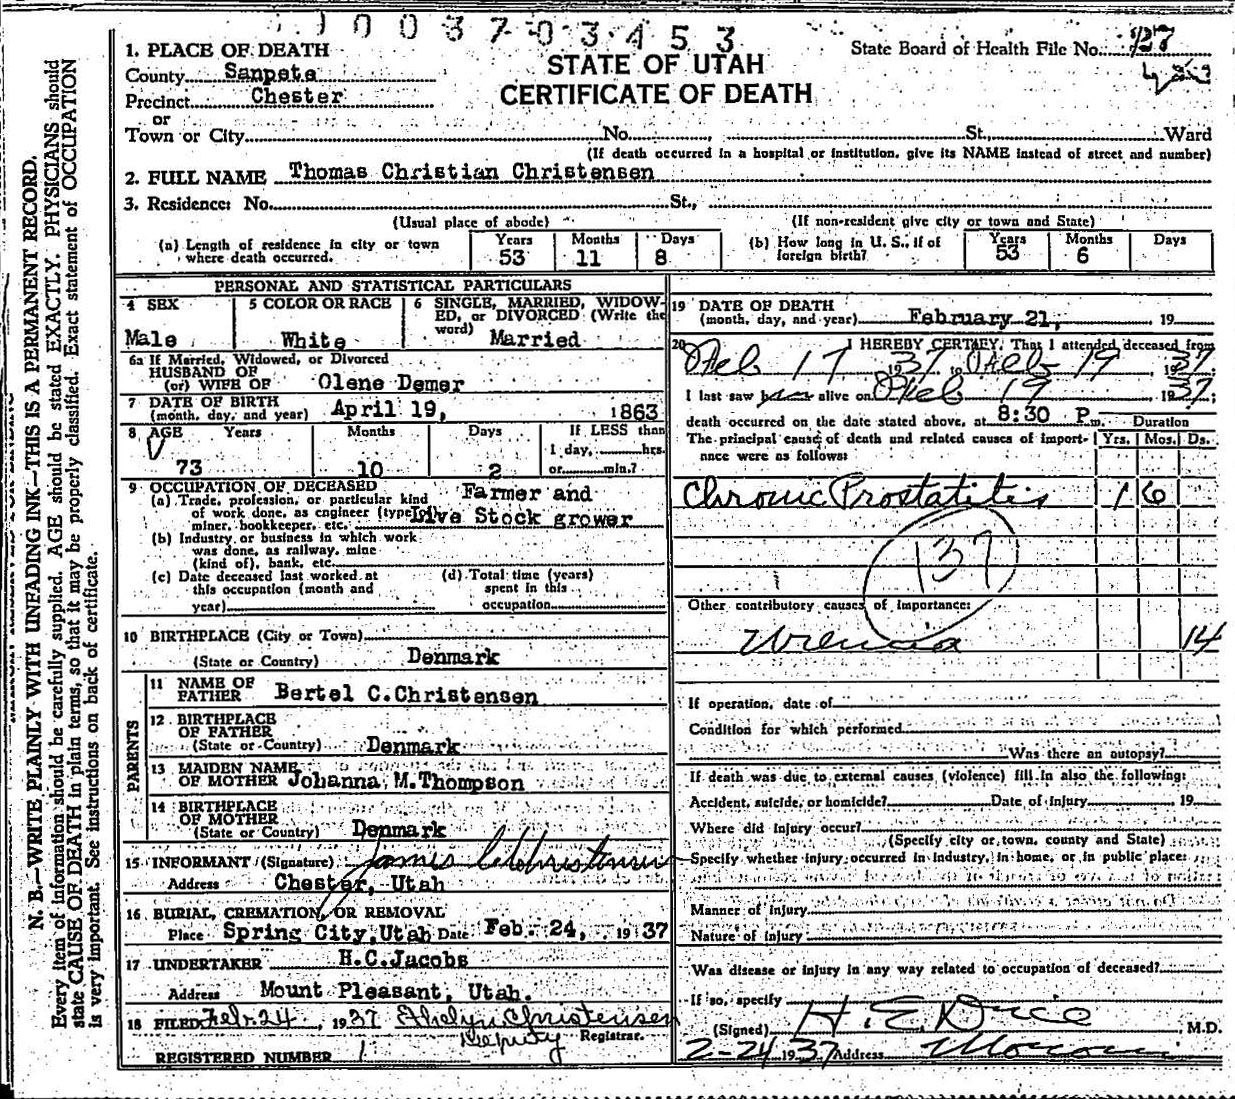 1003703453
1. PLACE OF DEATH
County Sanpete
Precinct Chester
or
Town or City No. St. Ward
STATE OF UTAH
CERTIFICATE OF DEATH
State Board of Health File No. 127
(If death occurred in a hospital or institution, give its NAME instead of street and number)
2. FULL NAME Thomas Christian Christensen
3. Residence: No. St.,
(Usual place of abode) (If non-resident give city or town and State)
(a) Length of residence in city or town where death occurred. Years 53 Months 11 Days 8
(b) How long in U. S., if of foreign birth? Years 53 Months 6 Days
PERSONAL AND STATISTICAL PARTICULARS
4 SEX Male
5 COLOR OR RACE White
6 SINGLE, MARRIED, WIDOWED, or DIVORCED (Write the word) Married
6a If Married, Widowed, or Divorced
HUSBAND OF
(or) WIFE OF Olene Demer
7 DATE OF BIRTH
(month, day, and year) April 19, 1863
8 AGE Years 73 Months 10 Days 2
If LESS than
1 day, hrs.
or min.?
9 OCCUPATION OF DECEASED Farmer and
(a) Trade, profession, or particular kind
of work done, as engineer (type Live Stock grower
miner, bookkeeper, etc.
(b) Industry or business in which work
was done, as railway, mine
(kind of), bank, etc.
(c) Date deceased last worked at
this occupation (month and
year)
(d) Total time (years)
spent in this
occupation
10 BIRTHPLACE (City or Town)
(State or Country) Denmark
PARENTS
11 NAME OF
FATHER Bertel C.Christensen
12 BIRTHPLACE
OF FATHER
(State or Country) Denmark
13 MAIDEN NAME
OF MOTHER Johanna M.Thompson
14 BIRTHPLACE
OF MOTHER
(State or Country) Denmark
15 INFORMANT (Signature) James C Christensen
Address Chester, Utah
16 BURIAL, CREMATION, OR REMOVAL
Place Spring City, Utah Date Feb. 24, 1937
17 UNDERTAKER H.C.Jacobs
Address Mount Pleasant, Utah.
18 FILED Feb. 24, 1937 Ethelyn Christensen
Deputy Registrar.
REGISTERED NUMBER 1
19 DATE OF DEATH
(month, day, and year) February 21, 19
20 I HEREBY CERTIFY, That I attended deceased from
Feb 17 1937 to Feb 19 1937
I last saw him alive on Feb 19 1937;
death occurred on the date stated above, at 8:30 P m. Duration
The principal cause of death and related causes of importance were as follows: Yrs. Mos. Ds.
Chronic Prostatitis 1 6
137
Other contributory causes of importance:
Uremia 14
If operation, date of
Condition for which performed
Was there an autopsy?
If death was due to external causes (violence) fill in also the following:
Accident, suicide, or homicide? Date of injury 19
Where did injury occur?
(Specify city or town, county and State)
Specify whether injury occurred in industry, in home, or in public place:
Manner of injury
Nature of injury
Was disease or injury in any way related to occupation of deceased?
If so, specify
(Signed) H. E. Dice M.D.
2-24 1937 Address Moroni
N. B.—WRITE PLAINLY WITH UNFADING INK—THIS IS A PERMANENT RECORD.
Every item of information should be carefully supplied. AGE should be stated EXACTLY. PHYSICIANS should
state CAUSE OF DEATH in plain terms, so that it may be properly classified. Exact statement of OCCUPATION
is very important. See instructions on back of certificate.